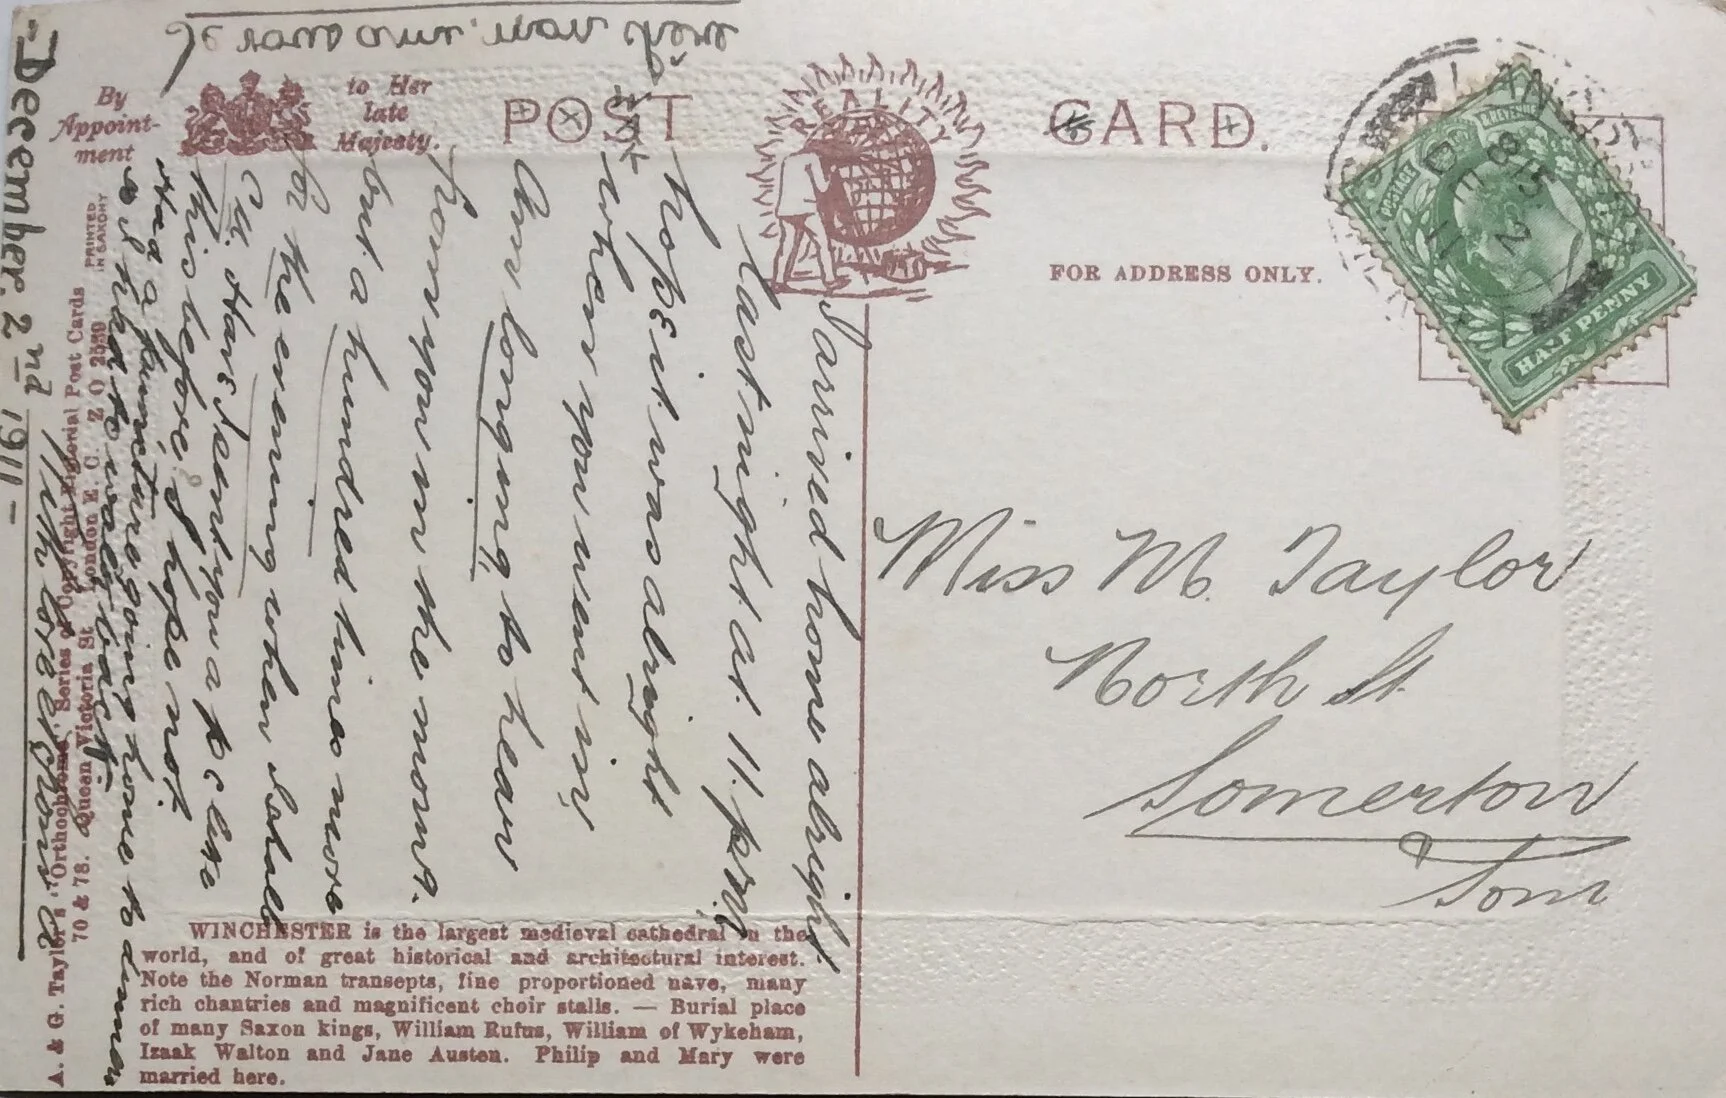 By
Appoint-
ment
to Her
late
Majesty.
POST
REALITY
CARD.
FOR ADDRESS ONLY.
POSTAGE
& REVENUE
HALF PENNY
8 15
DE 2
11
Miss M. Taylor
North St
Somerton
Som
I arrived home alright
last night at 11. p.m.
hope it was alright
when you went in,
Am longing, to hear
from you in the morng.
but a hundred times more
for the evening when I shall
c u. Have I sent you a p c like
this before, I hope not.
Had a puncture going home to dinner
& I had to walk back
With love
December. 2nd 1911-
PRINTED
IN SAXONY
A. & G. Taylor's "Orthochrome" Series of Copyright Pictorial Post Cards
70 & 78. Queen Victoria St London E. C.
WINCHESTER is the largest medieval cathedral in the
world, and of great historical and architectural interest.
Note the Norman transepts, fine proportioned nave, many
rich chantries and magnificent choir stalls. — Burial place
of many Saxon kings, William Rufus, William of Wykeham,
Izaak Walton and Jane Austen. Philip and Mary were
married here.